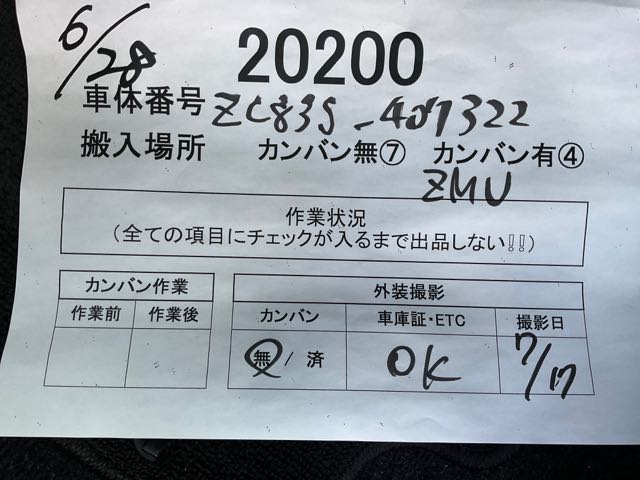 6/28
20200
車体番号 ZC83S-407322
搬入場所 カンバン無⑦ カンバン有④
ZMU
作業状況
(全ての項目にチェックが入るまで出品しない!!)
カンバン作業 外装撮影
作業前 作業後 カンバン 車庫証・ETC 撮影日
無/済 OK 7/17